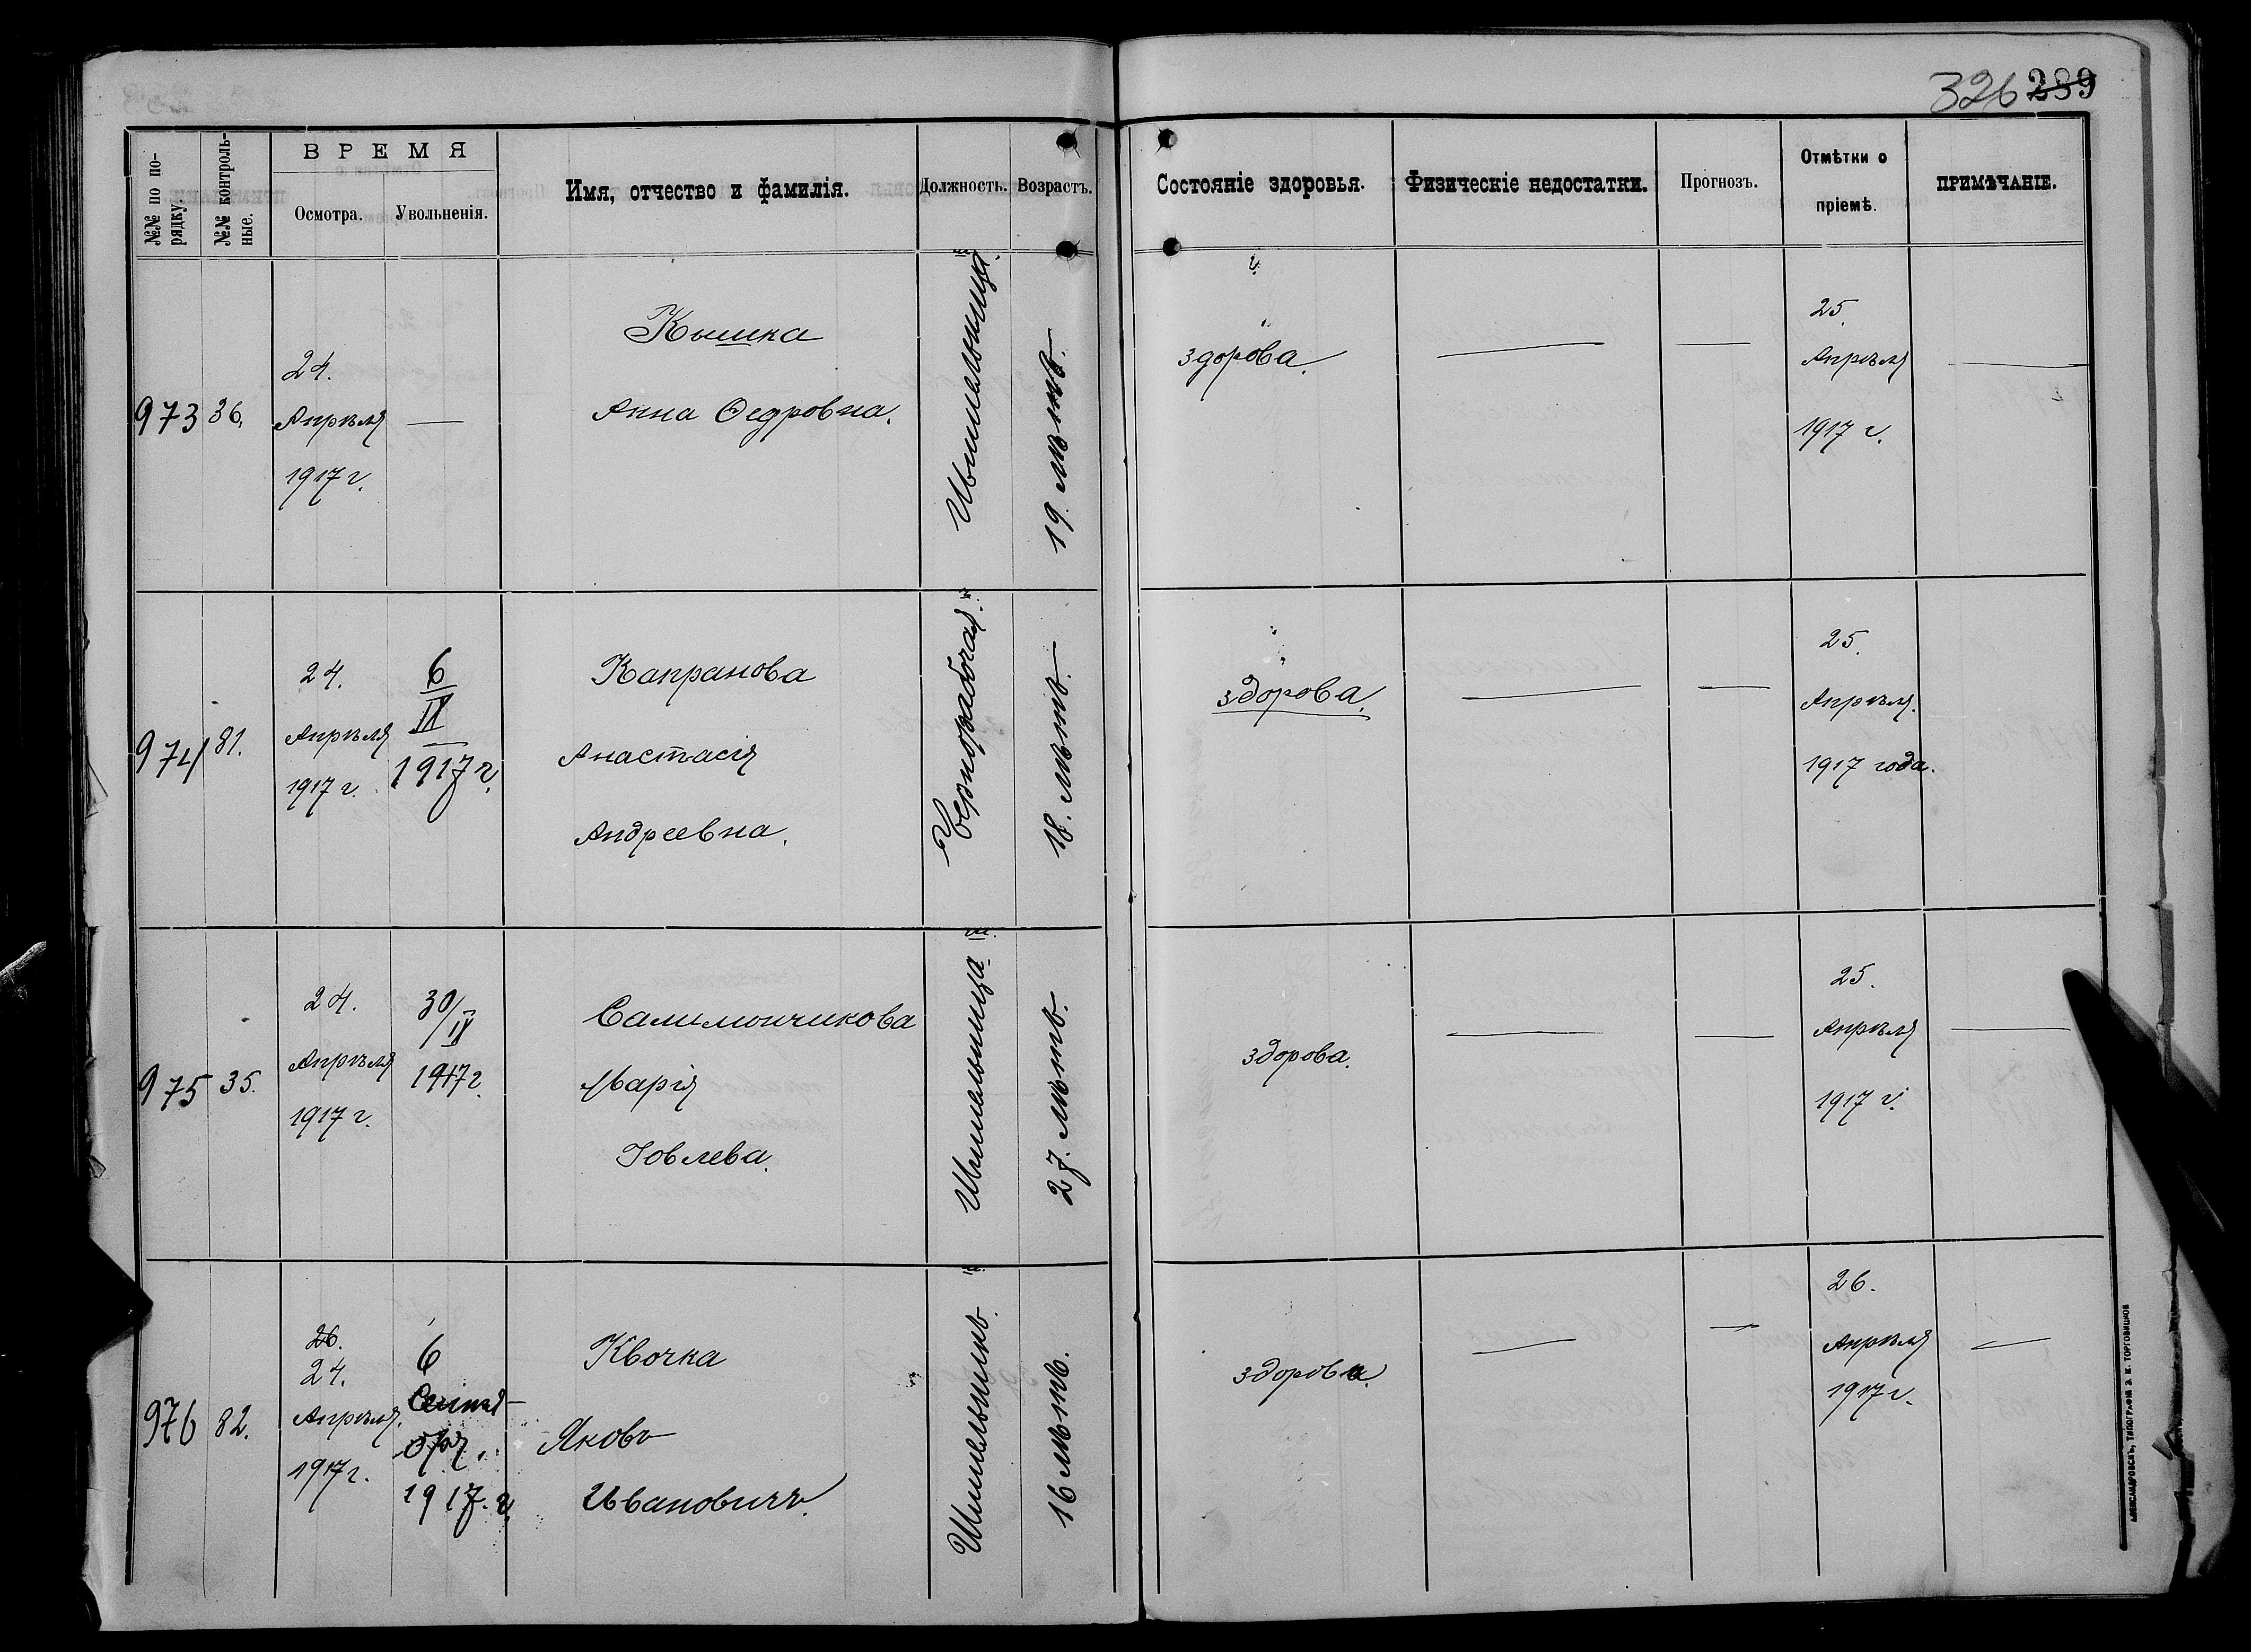 326 289
№№ по по-
рядку.
№№ контроль-
ные.
ВРЕМЯ
Осмотра.
Увольненія.
Имя, отчество и фамилія.
Должность.
Возрастъ.
Состояніе здоровья.
Физическіе недостатки.
Прогнозъ.
Отмѣтки о
пріемѣ.
ПРИМѢЧАНІЕ.
973
36.
24.
Апрѣля
1917 г.
—
Кышка
Анна Федровна.
19. лѣтъ.
здорова.
—
—
25.
Апрѣля
1917 г.
—
974
81.
24.
Апрѣля
1917 г.
6
IX
1917 г.
Капранова
Анастасія
Андреевна.
Чернорабочая.
18. лѣтъ.
здорова.
—
—
25.
Апрѣля.
1917 года.
975
35.
24.
Апрѣля
1917 г.
30/IX
1917 г.
Салимончикова
Марія
Іовлева.
27. лѣтъ.
здорова.
—
—
25.
Апрѣля
1917 г.
—
976
82.
26.
24.
Апрѣля.
1917 г.
6
Сентя-
бря.
1917. г.
Квочка
Яковъ
Ивановичъ.
16 лѣтъ.
здорова.
—
—
26.
Апрѣля
1917 г.
—
АЛЕКСАНДРОВСКЪ, ТИПОГРАФІЯ Э. И. ТОРГОВИЦКОВ